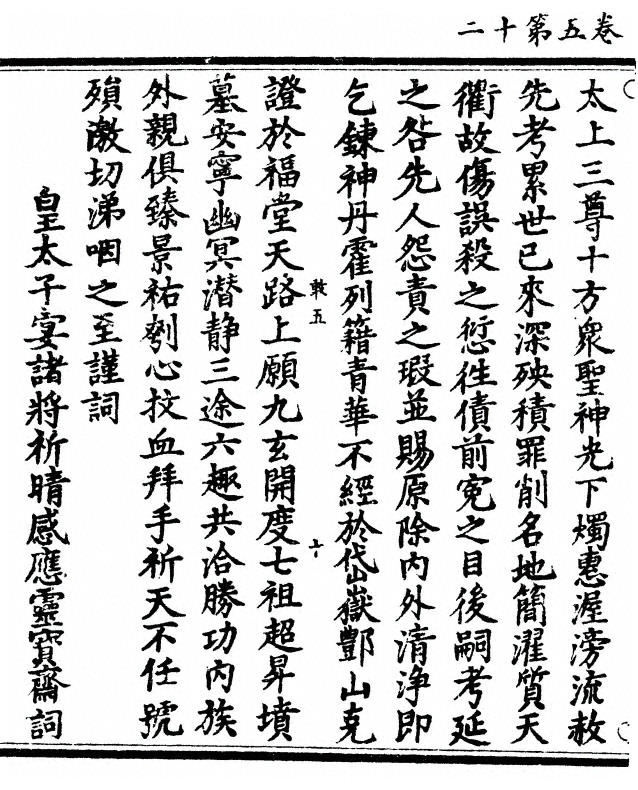 卷五第十二
太上三尊十方衆聖神光下燭惠渥滂流赦
先考累世已來深殃積罪削名地簡濯質天
衢故傷誤殺之愆徃債前寃之目後嗣考延
之咎先人怨責之瑕並賜原除內外清浄即
乞鍊神丹霍列籍青華不經於岱嶽酆山克
敕五
十
證於福堂天路上願九玄開度七祖超昇墳
墓安寧幽冥潜静三途六趣共洽勝功內族
外親俱臻景祐刳心抆血拜手祈天不任號
殞激切涕咽之至謹詞
皇太子宴諸將祈晴感應靈寶齋詞